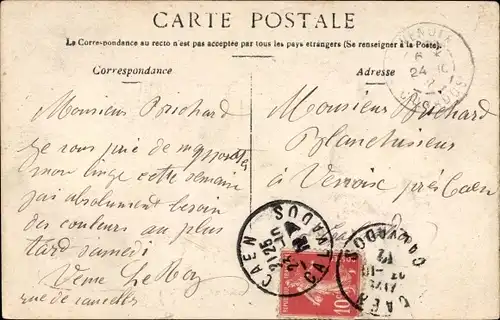 CARTE POSTALE
La Correspondance au recto n'est pas acceptée par tous les pays étrangers (Se renseigner à la Poste).
Correspondance
Monsieur Brichard
je vous prie de
mon linge cette semaine
jai absolument besoin
des couleurs au plus
tard samedi
Veuve Le Roy
rue de
Adresse
Monsieur Brichard
Blanchisseur
à près Caen
CAEN
21 25
CALVADOS
10
CAEN
CALVADOS
CALVADOS
24